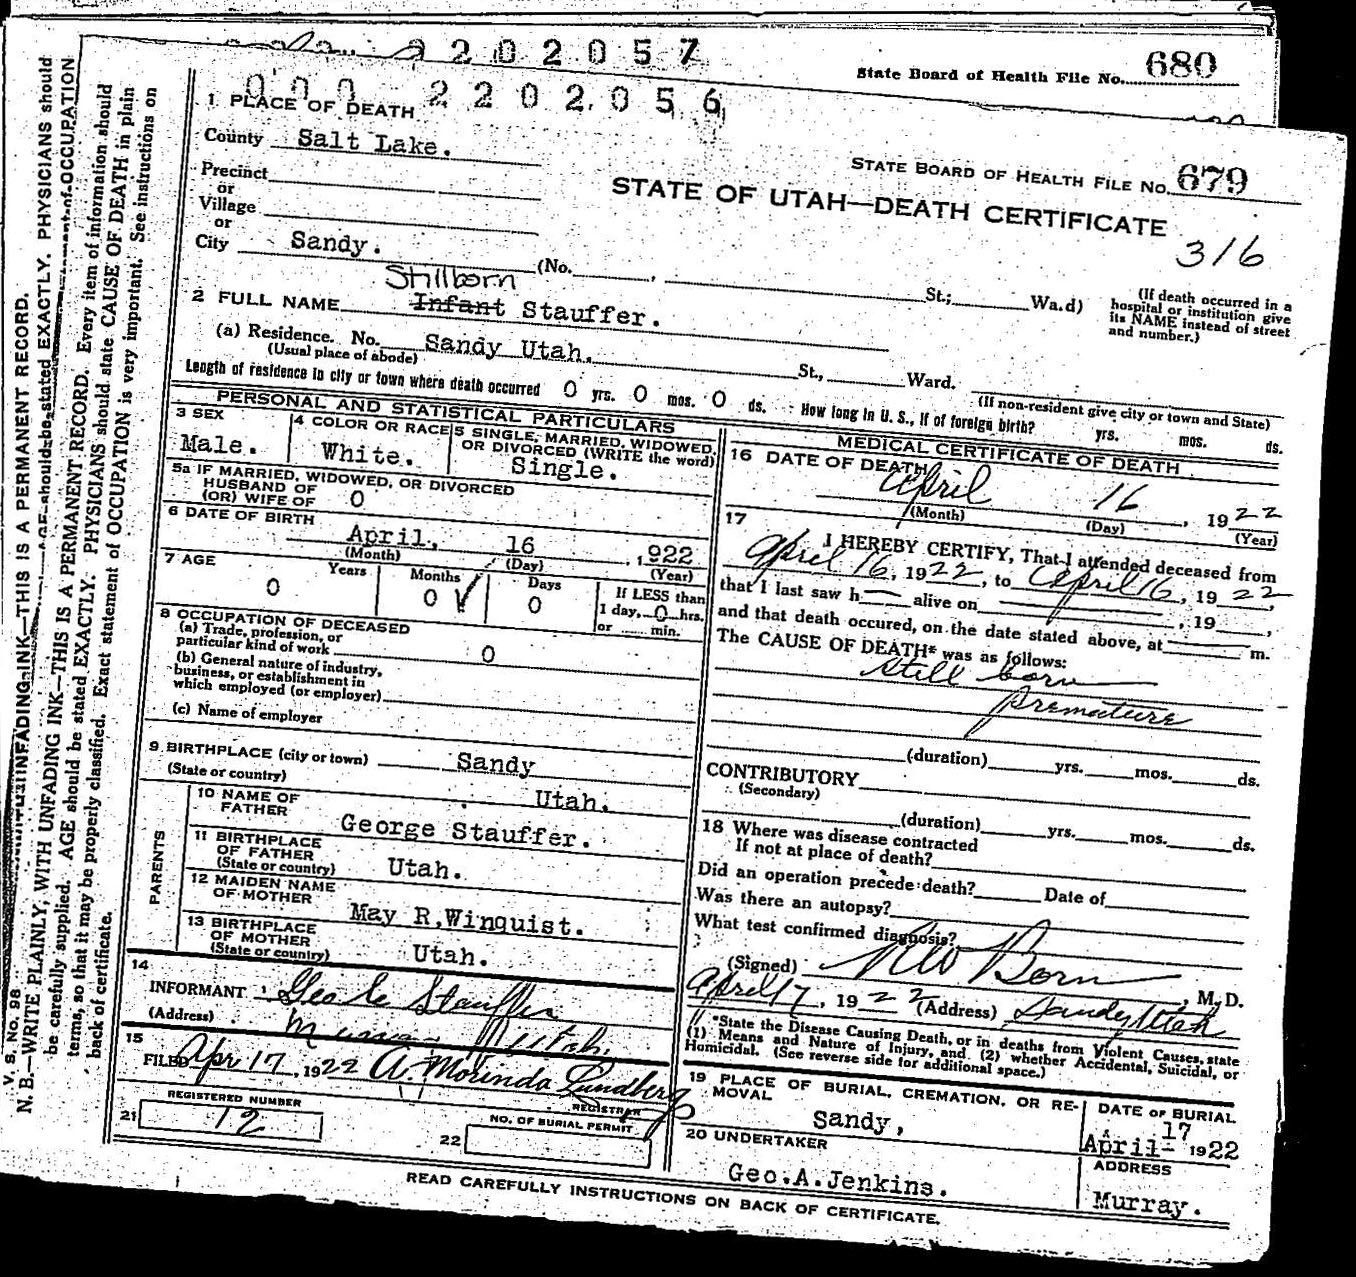 2202057
State Board of Health File No. 680
000 2202056
1 PLACE OF DEATH
County Salt Lake.
STATE BOARD OF HEALTH FILE No. 679
Precinct
or
Village
or
STATE OF UTAH—DEATH CERTIFICATE
316
City Sandy. (No. , St.; Wa.d)
(If death occurred in a hospital or institution give its NAME instead of street and number.)
Stillborn
2 FULL NAME Infant Stauffer.
(a) Residence. No. Sandy Utah. St., Ward.
(Usual place of abode)
(If non-resident give city or town and State)
Length of residence in city or town where death occurred 0 yrs. 0 mos. 0 ds. How long in U. S., if of foreign birth? yrs. mos. ds.
PERSONAL AND STATISTICAL PARTICULARS
3 SEX
Male.
4 COLOR OR RACE
White.
5 SINGLE, MARRIED, WIDOWED, OR DIVORCED (WRITE the word)
Single.
5a IF MARRIED, WIDOWED, OR DIVORCED
HUSBAND OF
(OR) WIFE OF 0
6 DATE OF BIRTH
April, 16 , 1922
(Month) (Day) (Year)
7 AGE
Years Months Days
0 0 0
If LESS than
1 day, 0 hrs.
or min.
8 OCCUPATION OF DECEASED
(a) Trade, profession, or
particular kind of work 0
(b) General nature of industry,
business, or establishment in
which employed (or employer)
(c) Name of employer
9 BIRTHPLACE (city or town) Sandy
(State or country) Utah.
PARENTS
10 NAME OF
FATHER George Stauffer.
11 BIRTHPLACE
OF FATHER
(State or country) Utah.
12 MAIDEN NAME
OF MOTHER May R,Winquist.
13 BIRTHPLACE
OF MOTHER
(State or country) Utah.
14
INFORMANT Geo C Stauffer
(Address) Utah.
15
FILED Apr 17, 1922 A. Morinda Lundberg
REGISTRAR
21 REGISTERED NUMBER
12
22 NO. OF BURIAL PERMIT
MEDICAL CERTIFICATE OF DEATH
16 DATE OF DEATH
April 16 , 1922
(Month) (Day) (Year)
17 I HEREBY CERTIFY, That I attended deceased from
April 16, 1922, to April 16, 1922,
that I last saw h— alive on , 19 ,
and that death occured, on the date stated above, at m.
The CAUSE OF DEATH* was as follows:
Still born
premature
(duration) yrs. mos. ds.
CONTRIBUTORY
(Secondary)
(duration) yrs. mos. ds.
18 Where was disease contracted
If not at place of death?
Did an operation precede death? Date of
Was there an autopsy?
What test confirmed diagnosis?
(Signed) Born , M. D.
April 17, 1922 (Address) Sandy Utah
*State the Disease Causing Death, or in deaths from Violent Causes, state
(1) Means and Nature of Injury, and (2) whether Accidental, Suicidal, or
Homicidal. (See reverse side for additional space.)
19 PLACE OF BURIAL, CREMATION, OR REMOVAL
Sandy,
DATE OF BURIAL
April 17 1922
20 UNDERTAKER
Geo.A.Jenkins.
ADDRESS
Murray.
READ CAREFULLY INSTRUCTIONS ON BACK OF CERTIFICATE.
V. S. No. 98
N. B.—WRITE PLAINLY, WITH UNFADING INK—THIS IS A PERMANENT RECORD. Every item of information should
be carefully supplied. AGE should be stated EXACTLY. PHYSICIANS should state CAUSE OF DEATH in plain
terms, so that it may be properly classified. Exact statement of OCCUPATION is very important. See instructions on
back of certificate.
UNFADING INK—THIS IS A PERMANENT RECORD.
AGE should be stated EXACTLY. PHYSICIANS should
OCCUPATION